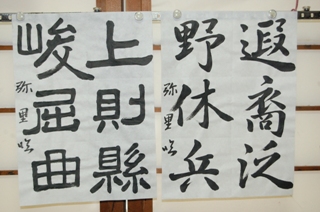 遐裔泛
野休兵
弥里咲
上則縣
峻屈曲
弥里咲